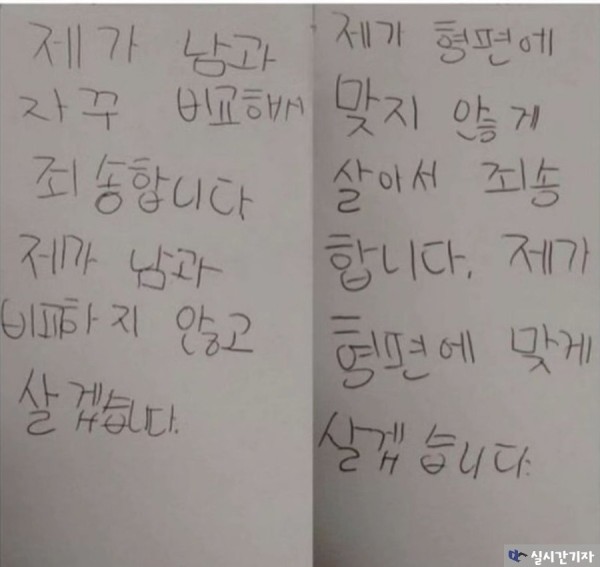 제가 남과
자꾸 비교해서
죄송합니다
제가 남과
비교하지 않고
살겠습니다.
제가 형편에
맞지 않게
살아서 죄송
합니다. 제가
형편에 맞게
살겠습니다.
실시간기자